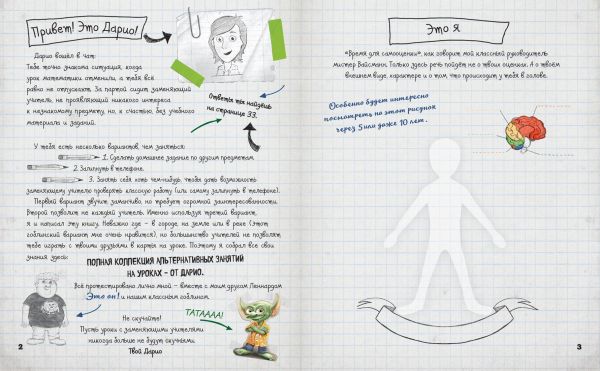 Привет! Это Дарио!
Дарио вошёл в чат:
Тебе точно знакома ситуация, когда
урок математики отменили, а тебя всё
равно не отпускают. За партой сидит заменяющий
учитель, не проявляющий никакого интереса
к незнакомому предмету, но, к счастью, без учебного
материала и заданий.
Ответы ты найдёшь
на странице 33.
У тебя есть несколько вариантов, чем заняться:
1. Сделать домашнее задание по другим предметам
2. Залипнуть в телефоне.
3. Занять себя хоть чем-нибудь, чтобы дать возможность
заменяющему учителю проверять классную работу (или самому залипнуть в телефоне).
Первый вариант звучит заманчиво, но требует огромной заинтересованности.
Второй позволит не каждый учитель. Именно используя третий вариант,
я и написал эту книгу. Неважно где – в городе, на земле или в реке (Этот
гоблинский вариант мне очень нравится), но большинство учителей не позволят
тебе играть с твоими друзьями в карты на уроке. Поэтому я собрал все свои
знания здесь:
ПОЛНАЯ КОЛЛЕКЦИЯ АЛЬТЕРНАТИВНЫХ ЗАНЯТИЙ
НА УРОКАХ – ОТ ДАРИО.
Всё протестировано лично мной – вместе с моим другом Леннардом
Это он!
и нашим классным гоблином.
ТАТАААА!
Не скучайте!
Пусть уроки с заменяющими учителями
никогда больше не будут скучными.
Твой Дарио
2
Это Я
«Время для самооценки», как говорит мой классный руководитель
мистер Вайсманн. Только здесь речь пойдёт не о твоих оценках. А о твоём
внешнем виде, характере и о том, что происходит у тебя в голове.
Особенно будет интересно
посмотреть на этот рисунок
через 5 или даже 10 лет.
3